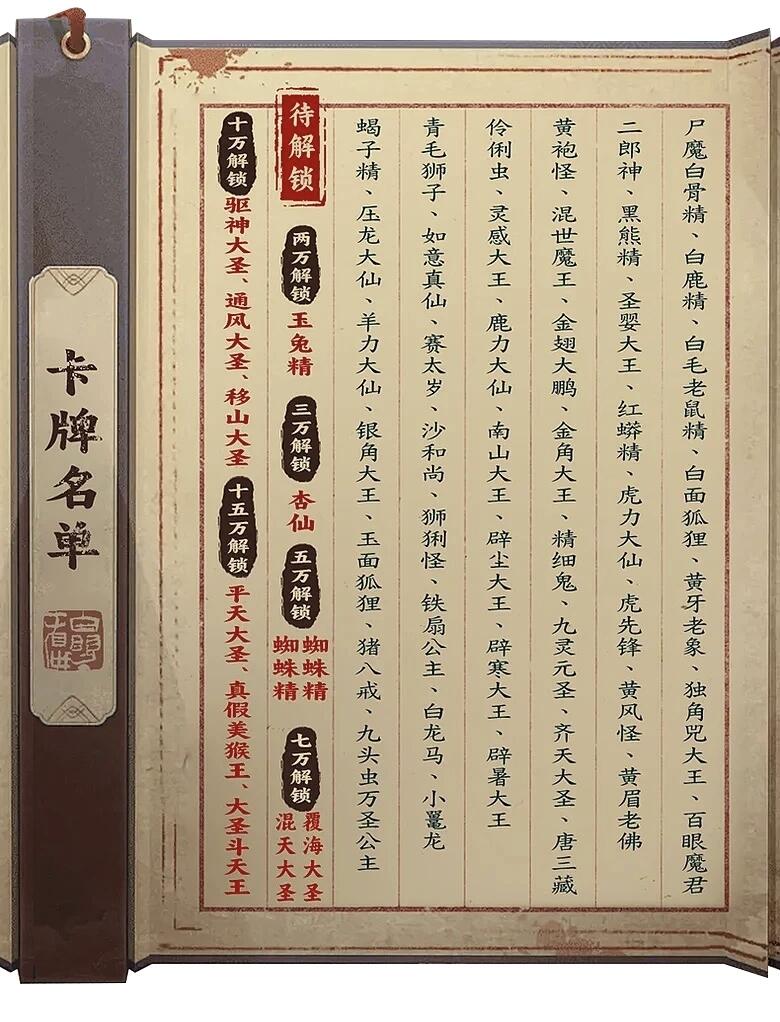 尸魔白骨精、白鹿精、白毛老鼠精、白面狐狸、黄牙老象、独角兕大王、百眼魔君
二郎神、黑熊精、圣婴大王、红蟒精、虎力大仙、虎先锋、黄风怪、黄眉老佛
黄袍怪、混世魔王、金翅大鹏、金角大王、精细鬼、九灵元圣、齐天大圣、唐三藏
伶俐虫、灵感大王、鹿力大仙、南山大王、辟尘大王、辟寒大王、辟暑大王
青毛狮子、如意真仙、赛太岁、沙和尚、狮猁怪、铁扇公主、白龙马、小鼍龙
蝎子精、压龙大仙、羊力大仙、银角大王、玉面狐狸、猪八戒、九头虫万圣公主
待解锁
两万解锁
玉兔精
三万解锁
杏仙
五万解锁
蜘蛛精
蜘蛛精
七万解锁
覆海大圣
混天大圣
十万解锁
驱神大圣、通风大圣、移山大圣
十五万解锁
平天大圣、真假美猴王、大圣斗天王
卡牌名单